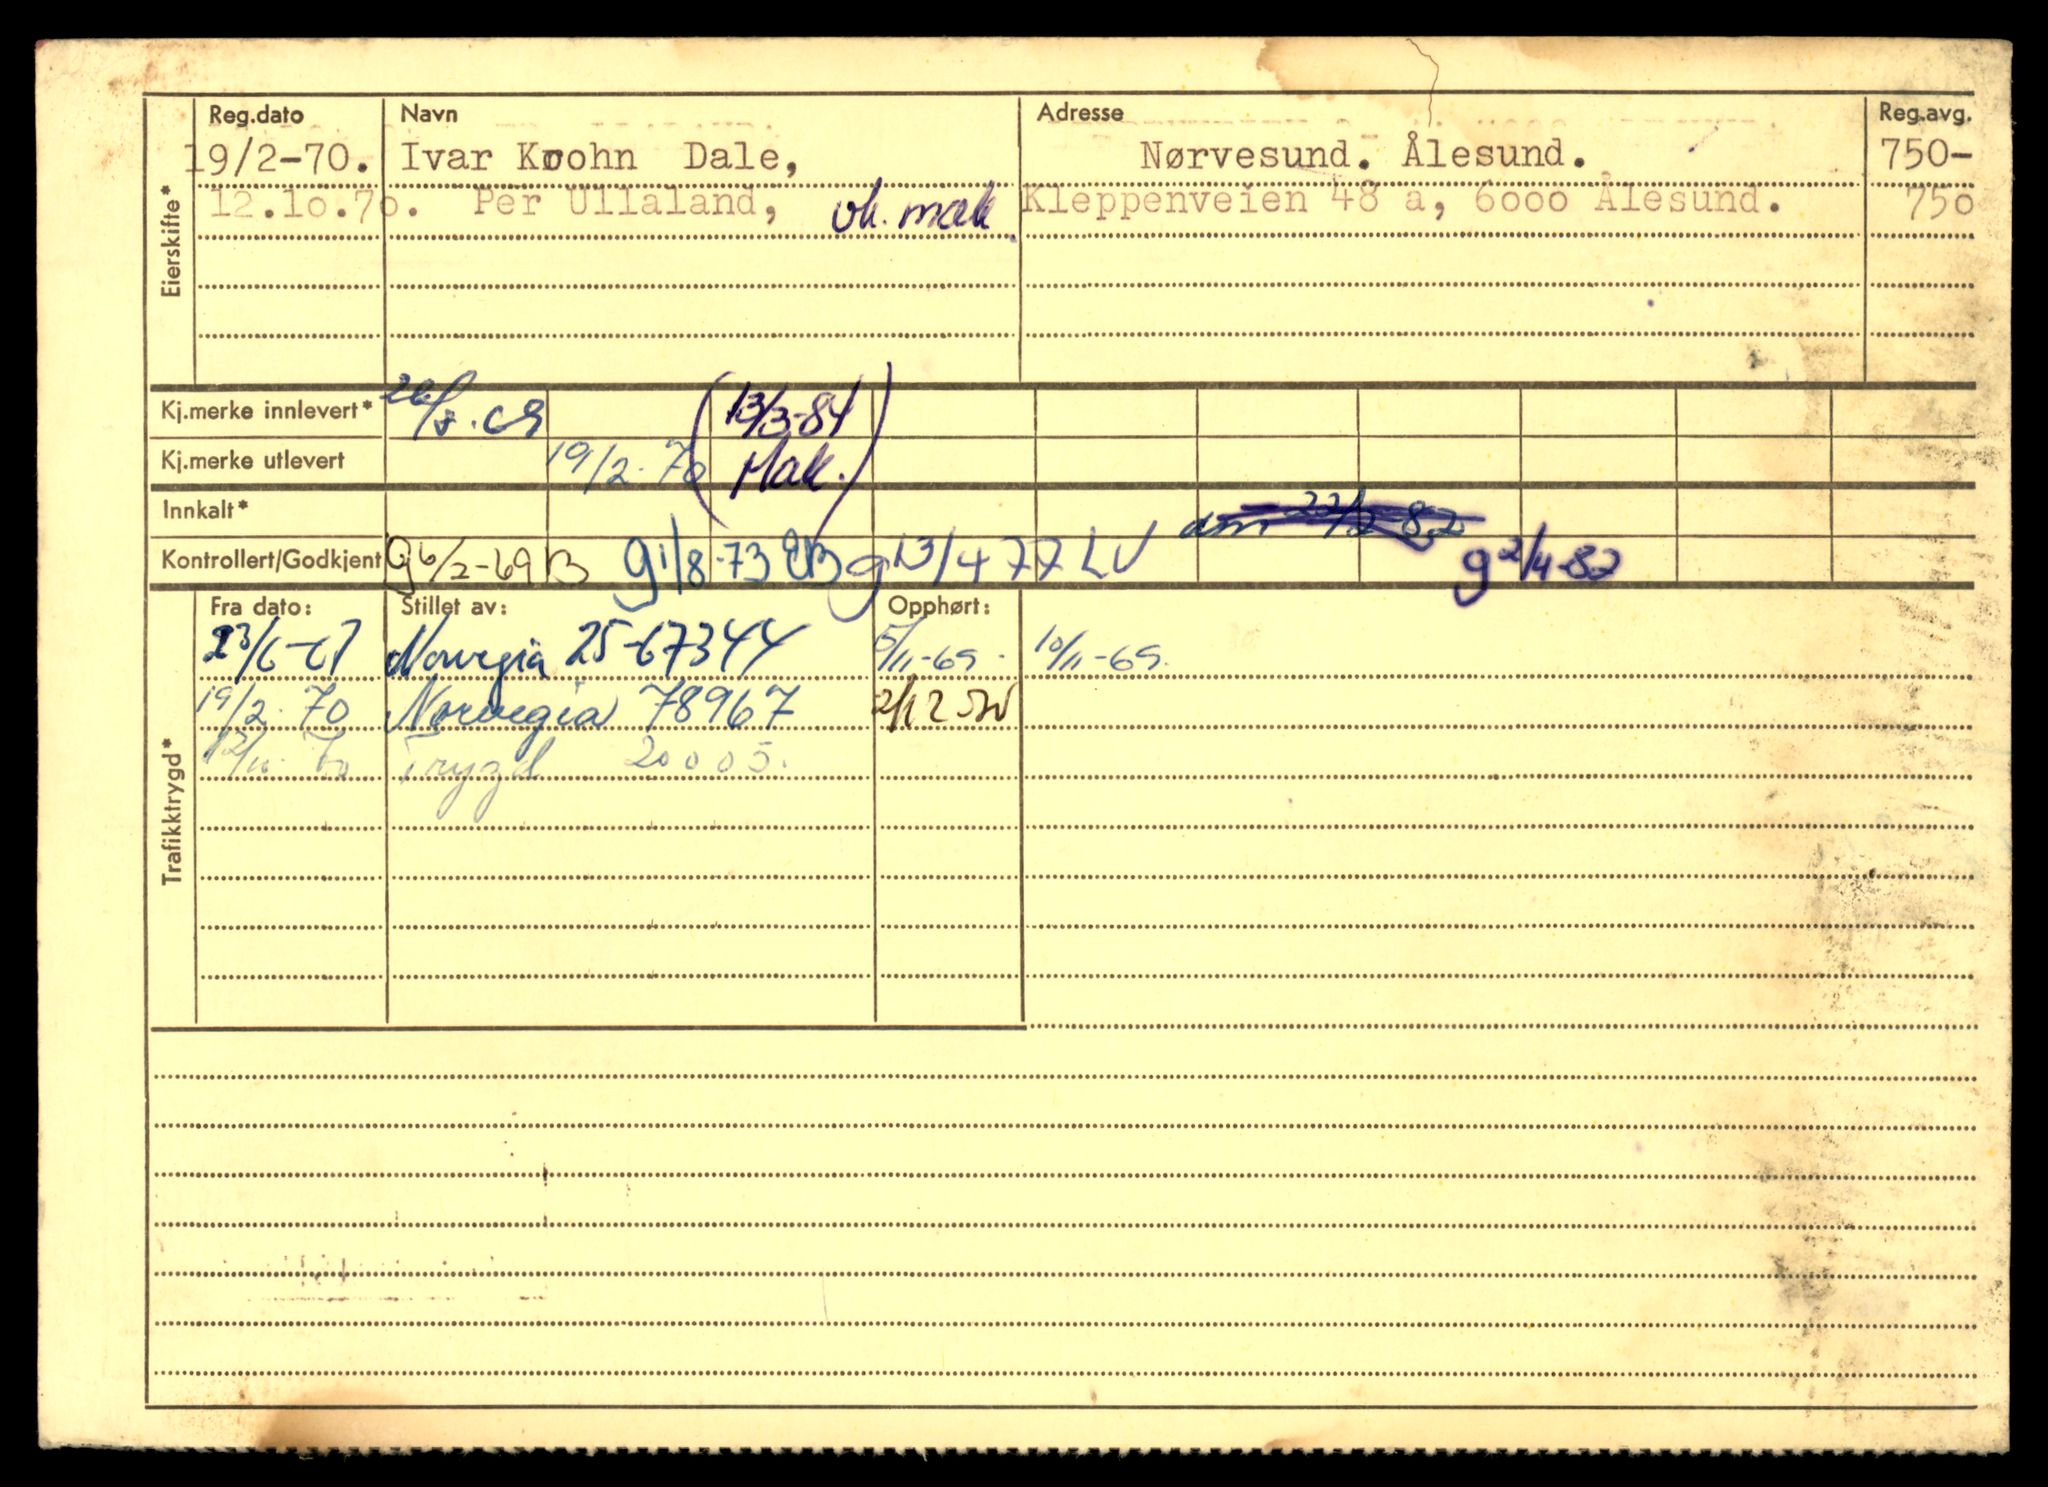 Reg.dato Navn Adresse Reg.avg.
19/2-70. Ivar Krohn Dale, Nørvesund. Ålesund. 750-
12.10.70. Per Ullaland, vk. mak Kleppenveien 48 a, 6000 Ålesund. 750
Eierskifte*
Kj.merke innlevert* 26/8.69 (13/3-84
Kj.merke utlevert 19/2.70 Mak.)
Innkalt* 22/2 82
Kontrollert/Godkjent g 6/2-69 B g 1/8-73 EB g 13/4 77 LV g 2/4-82
Fra dato: Stillet av: Opphørt:
23/6-67 Norvegia 25-67344 5/11-69. 10/11-69.
19/2.70 Norvegia 78967 2/12
12/10.70 Trygd 20005.
Trafikktrygd*